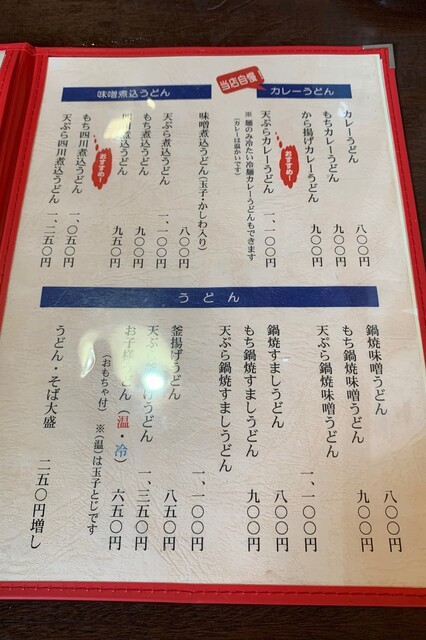 当店自慢!
カレーうどん
カレーうどん 八〇〇円
もちカレーうどん 九〇〇円
から揚げカレーうどん 九〇〇円
おすすめー!
天ぷらカレーうどん 一、一〇〇円
※ 麺のみ冷たい冷麺カレーうどんもできます
(カレーは温かいです)
味噌煮込うどん
味噌煮込うどん(玉子・かしわ入り) 八〇〇円
天ぷら煮込うどん 一、一〇〇円
もち煮込うどん 九〇〇円
四川煮込うどん 九五〇円
おすすめー!
もち四川煮込うどん 一、〇五〇円
天ぷら四川煮込うどん 一、二五〇円
うどん
鍋焼味噌うどん 八〇〇円
もち鍋焼味噌うどん 九〇〇円
天ぷら鍋焼味噌うどん 一、一〇〇円
鍋焼すましうどん 八〇〇円
もち鍋焼すましうどん 九〇〇円
天ぷら鍋焼すましうどん 一、一〇〇円
釜揚げうどん 八五〇円
天ぷら げうどん 一、三五〇円
お子様うどん(温・冷) 六五〇円
(おもちゃ付) ※(温)は玉子とじです
うどん・そば大盛 二五〇円増し